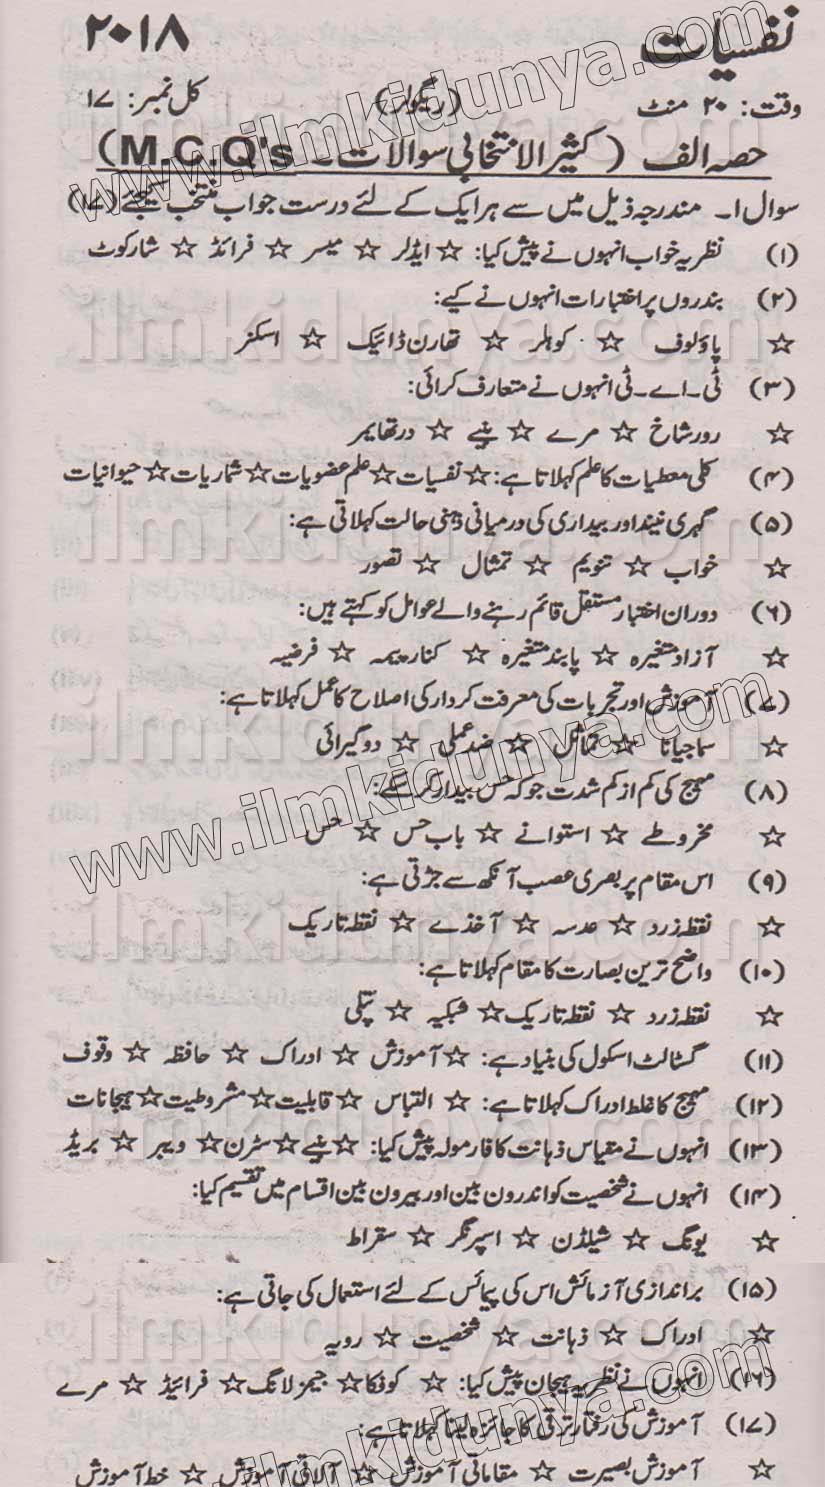 نفسیات ۲۰۱۸
وقت: ۲۰ منٹ (ریگولر) کل نمبر: ۱۷
حصہ الف (کثیر الانتخابی سوالات۔ M.C.Q's)
سوال ۱۔ مندرجہ ذیل میں سے ہر ایک کے لئے درست جواب منتخب کیجئے (۱۷)
(۱) نظریہ خواب انہوں نے پیش کیا: ☆ ایڈلر ☆ میسر ☆ فرائڈ ☆ شارکوٹ
(۲) بندروں پر اختبارات انہوں نے کیے:
☆ پاؤلوف ☆ کوہلر ☆ تھارن ڈائیک ☆ اسکنر
(۳) ٹی۔اے۔ٹی انہوں نے متعارف کرائی:
☆ رورشاخ ☆ مرے ☆ بنیے ☆ ورتھایمر
(۴) کلی معطیات کا علم کہلاتا ہے: ☆ نفسیات ☆ علم عضویات ☆ شماریات ☆ حیوانیات
(۵) گہری نیند اور بیداری کی درمیانی ذہنی حالت کہلاتی ہے:
☆ خواب ☆ تنویم ☆ تمثال ☆ تصور
(۶) دوران اختبار مستقل قائم رہنے والے عوامل کو کہتے ہیں:
☆ آزاد متغیرہ ☆ پابند متغیرہ ☆ کنار پیمہ ☆ فرضیہ
(۷) آموزش اور تجربات کی معرفت کردار کی اصلاح کا عمل کہلاتا ہے:
☆ سماجیانا ☆ تماثل ☆ ضد عملی ☆ دوگیرائی
(۸) مہیج کی کم از کم شدت جو کہ حس بیدار کر سکے:
☆ مخروطے ☆ استوانے ☆ باب حس ☆ حس
(۹) اس مقام پر بصری عصب آنکھ سے جڑتی ہے:
☆ نقطہ زرد ☆ عدسہ ☆ آخذے ☆ نقطہ تاریک
(۱۰) واضح ترین بصارت کا مقام کہلاتا ہے:
☆ نقطہ زرد ☆ نقطہ تاریک ☆ شبکیہ ☆ پتلی
(۱۱) گسٹالٹ اسکول کی بنیاد ہے: ☆ آموزش ☆ ادراک ☆ حافظہ ☆ وقوف
(۱۲) مہیج کا غلط ادراک کہلاتا ہے: ☆ القباس ☆ قابلیت ☆ مشروطیت ☆ ہیجانات
(۱۳) انہوں نے مقیاس ذہانت کا فارمولہ پیش کیا: ☆ بنیے ☆ سٹرن ☆ ویبر ☆ بریڈ
(۱۴) انہوں نے شخصیت کو اندرون بین اور بیرون بین اقسام میں تقسیم کیا:
☆ یونگ ☆ شیلڈن ☆ اسپرنگر ☆ سقراط
(۱۵) براندازی آزمائش اس کی پیمائش کے لئے استعمال کی جاتی ہے:
☆ ادراک ☆ ذہانت ☆ شخصیت ☆ رویہ
(۱۶) انہوں نے نظریہ ہیجان پیش کیا: ☆ کوفکا ☆ جیمز لانگ ☆ فرائیڈ ☆ مرے
(۱۷) آموزش کی رفتار ترقی کا جائزہ لینا کہلاتا ہے:
☆ آموزش بصیرت ☆ مقاماتی آموزش ☆ آلاتی آموزش ☆ خط آموزش
www.ilmkidunya.com
ilmkidunya.com
ilmkidunya.com
ilmkidunya.com
www.ilmkidunya.com
ilmkidunya.com
ilmkidunya.com
ilmkidunya.com
ilmkidunya.com
www.ilmkidunya.com